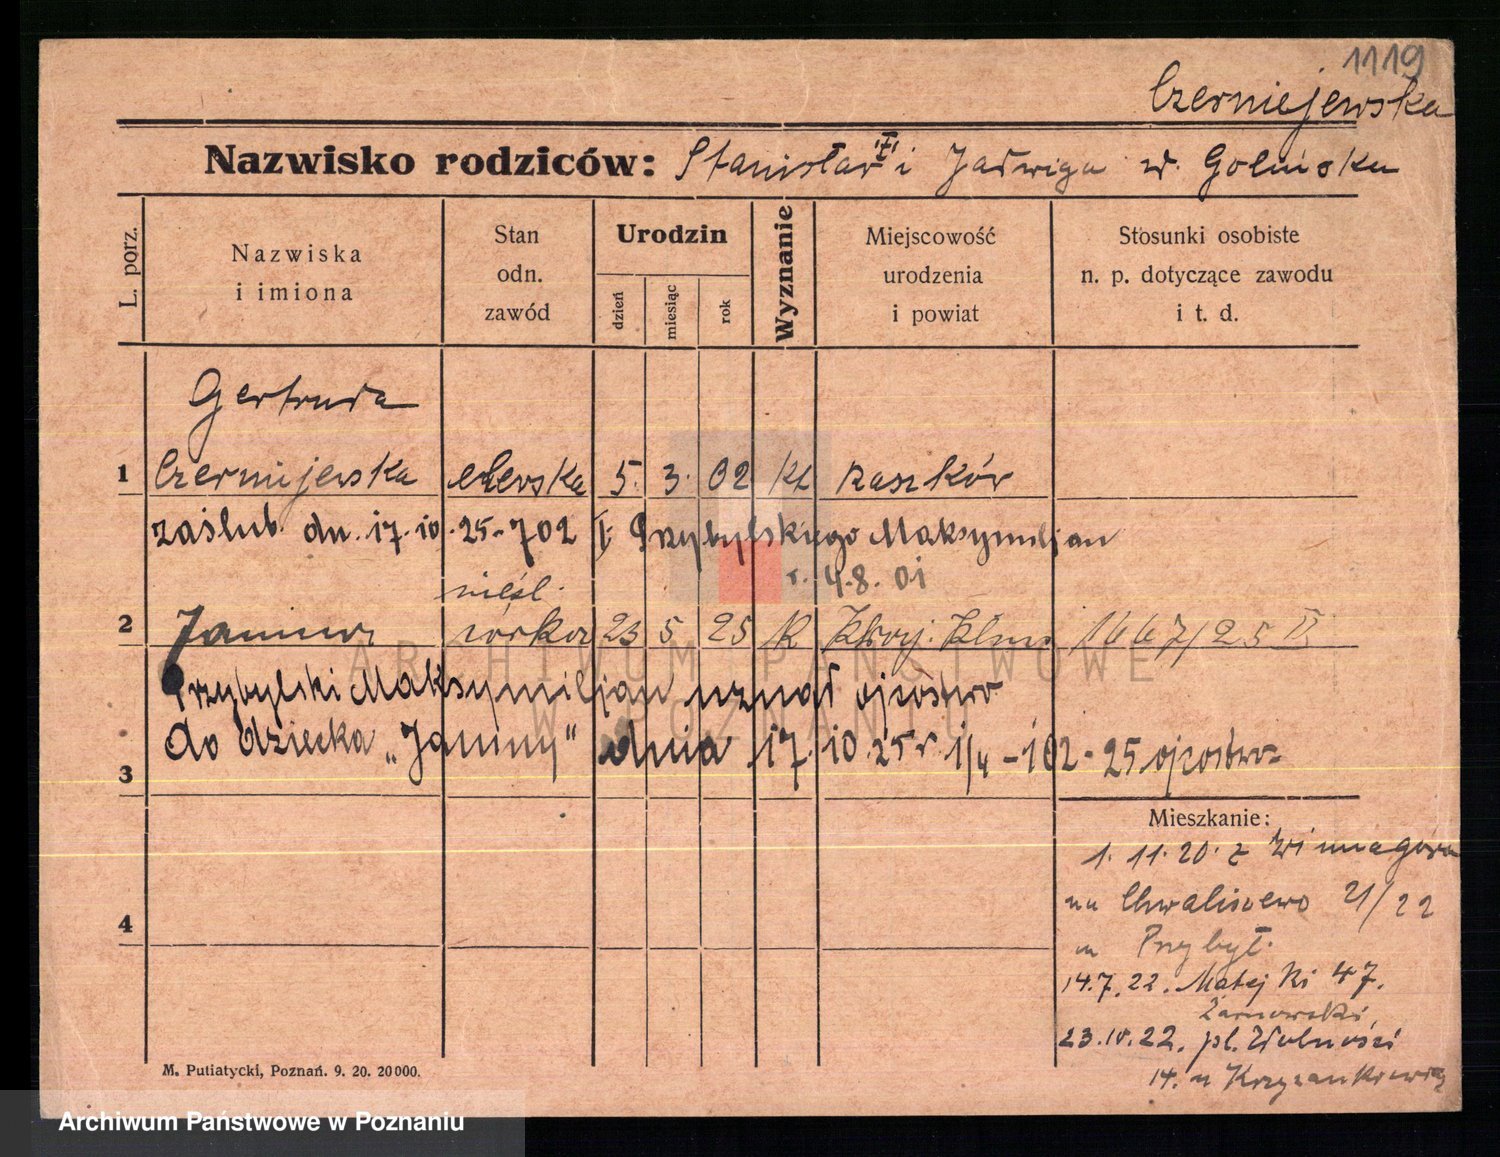 1119
Czerniejewska
Nazwisko rodziców: Stanisław i Jadwiga z d. Golińska
L. porz.
Nazwiska
i imiona
Stan
odn.
zawód
Urodzin
dzień
miesiąc
rok
Wyznanie
Miejscowość
urodzenia
i powiat
Stosunki osobiste
n. p. dotyczące zawodu
i t. d.
Gertruda
1 Czerniejewska 5. 3. 02 kt Raszków
zaślub. dn. 17.10.25 - 702 Przybylskiego Maksymiljan
r. 4.8.01
nieśl.
2 Janina córka 23 5 25 K 1667/25 II
Przybylski Maksymiljan uznał ojcostwo
do dziecka „Janiny" dnia 17.10.25 r. 1/4 - 102 - 25 ojcostwo
3
Mieszkanie:
1. 11. 20. z Winnagóra
na Chwaliszewo 21/22
u Przybył.
14.7.22. Matejki 47.
Żarnowski
23.10.22. pl. Wolności
14. u Krzyżankiewicz
4
M. Putiatycki, Poznań. 9. 20. 20000.
ARCHIWUM PAŃSTWOWE
W POZNANIU
Archiwum Państwowe w Poznaniu